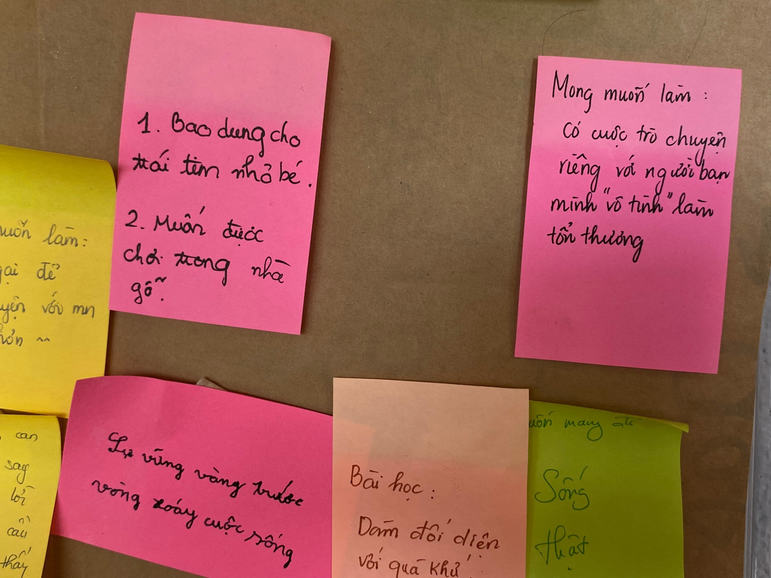 1. Bao dung cho
trái tim nhỏ bé.
2. Muốn được
chơi trong nhà
gỗ.
Mong muốn làm :
có cuộc trò chuyện
riêng với người bạn
mình "vô tình" làm
tổn thương
làm:
để
với mn
Sự vững vàng trước
vòng xoáy cuộc sống
Bài học :
Dám đối diện
với quá khứ
mang
Sống
thật
can
say
lời
cầu
thấy